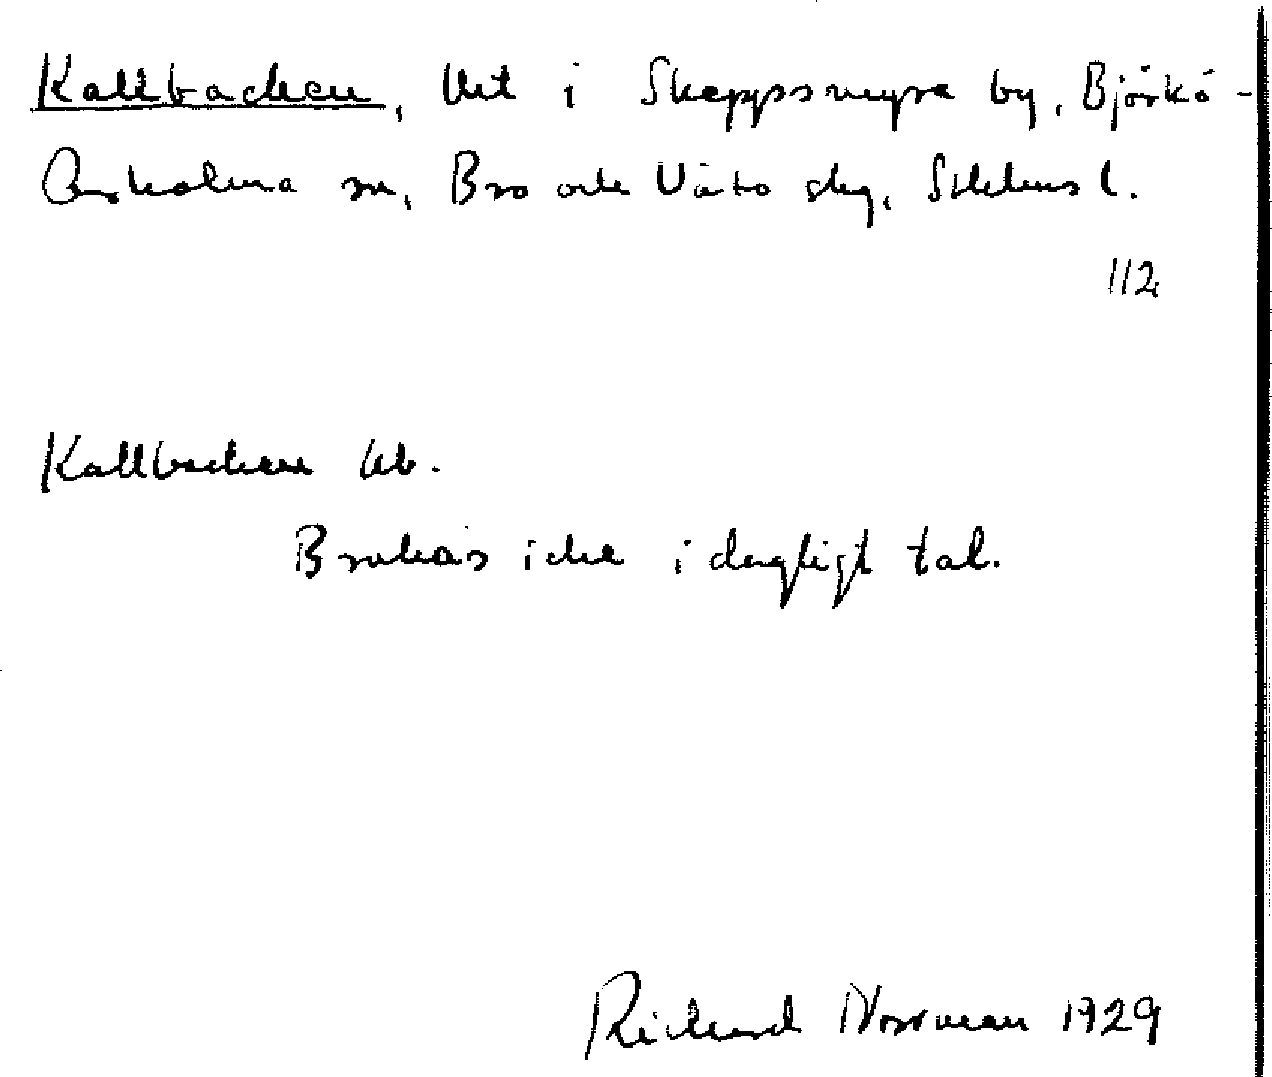 Kallbacken, Urt i Skeppsmyra by, Björkö-
Arholma sn, Bro och Vätö skg, Sthlms l.
112
Kallbacken kb.
Brukas icke i dagligt tal.
Richard Norrman 1929